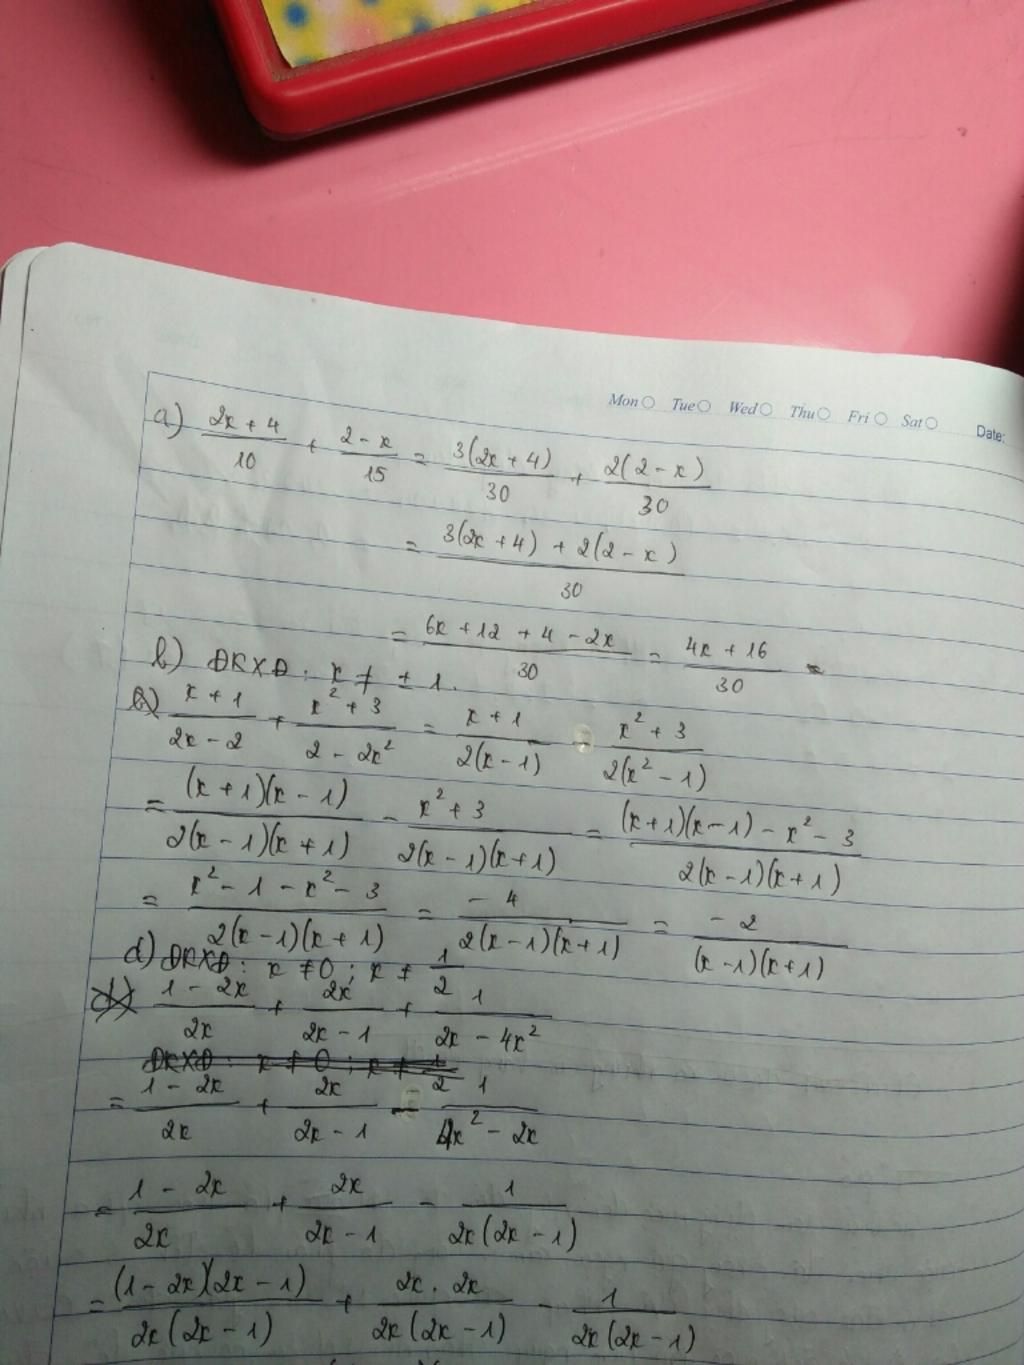 Mon Tue Wed Thu Fri Sat Date:
a) (2x + 4)/10 + (2 - x)/15 = 3(2x + 4)/30 + 2(2 - x)/30
= (3(2x + 4) + 2(2 - x))/30
= (6x + 12 + 4 - 2x)/30 = (4x + 16)/30
b) ĐKXĐ : x ≠ ± 1.
(x + 1)/(2x - 2) + (x² + 3)/(2 - 2x²) = (x + 1)/(2(x - 1)) - (x² + 3)/(2(x² - 1))
= ((x + 1)(x - 1))/(2(x - 1)(x + 1)) - (x² + 3)/(2(x - 1)(x + 1)) = ((x + 1)(x - 1) - x² - 3)/(2(x - 1)(x + 1))
= (x² - 1 - x² - 3)/(2(x - 1)(x + 1)) = (- 4)/(2(x - 1)(x + 1)) = (- 2)/((x - 1)(x + 1))
d) ĐKXĐ : x ≠ 0 ; x ≠ 1/2
(1 - 2x)/(2x) + (2x)/(2x - 1) + 1/(2x - 4x²)
ĐKXĐ : x ≠ 0 ; x ≠ 1/2
= (1 - 2x)/(2x) + (2x)/(2x - 1) - 1/(4x² - 2x)
= (1 - 2x)/(2x) + (2x)/(2x - 1) - 1/(2x(2x - 1))
= ((1 - 2x)(2x - 1))/(2x(2x - 1)) + (2x . 2x)/(2x(2x - 1)) - 1/(2x(2x - 1))